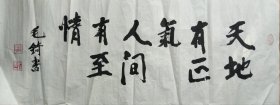 天地
有正
氣
人间
有至
情
毛锜書